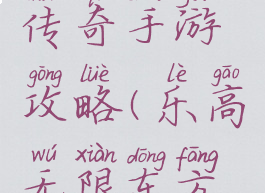 传奇手游
gōng lüè lè gāo
攻略(乐高
wú xiàn dōng fāng
无限东方